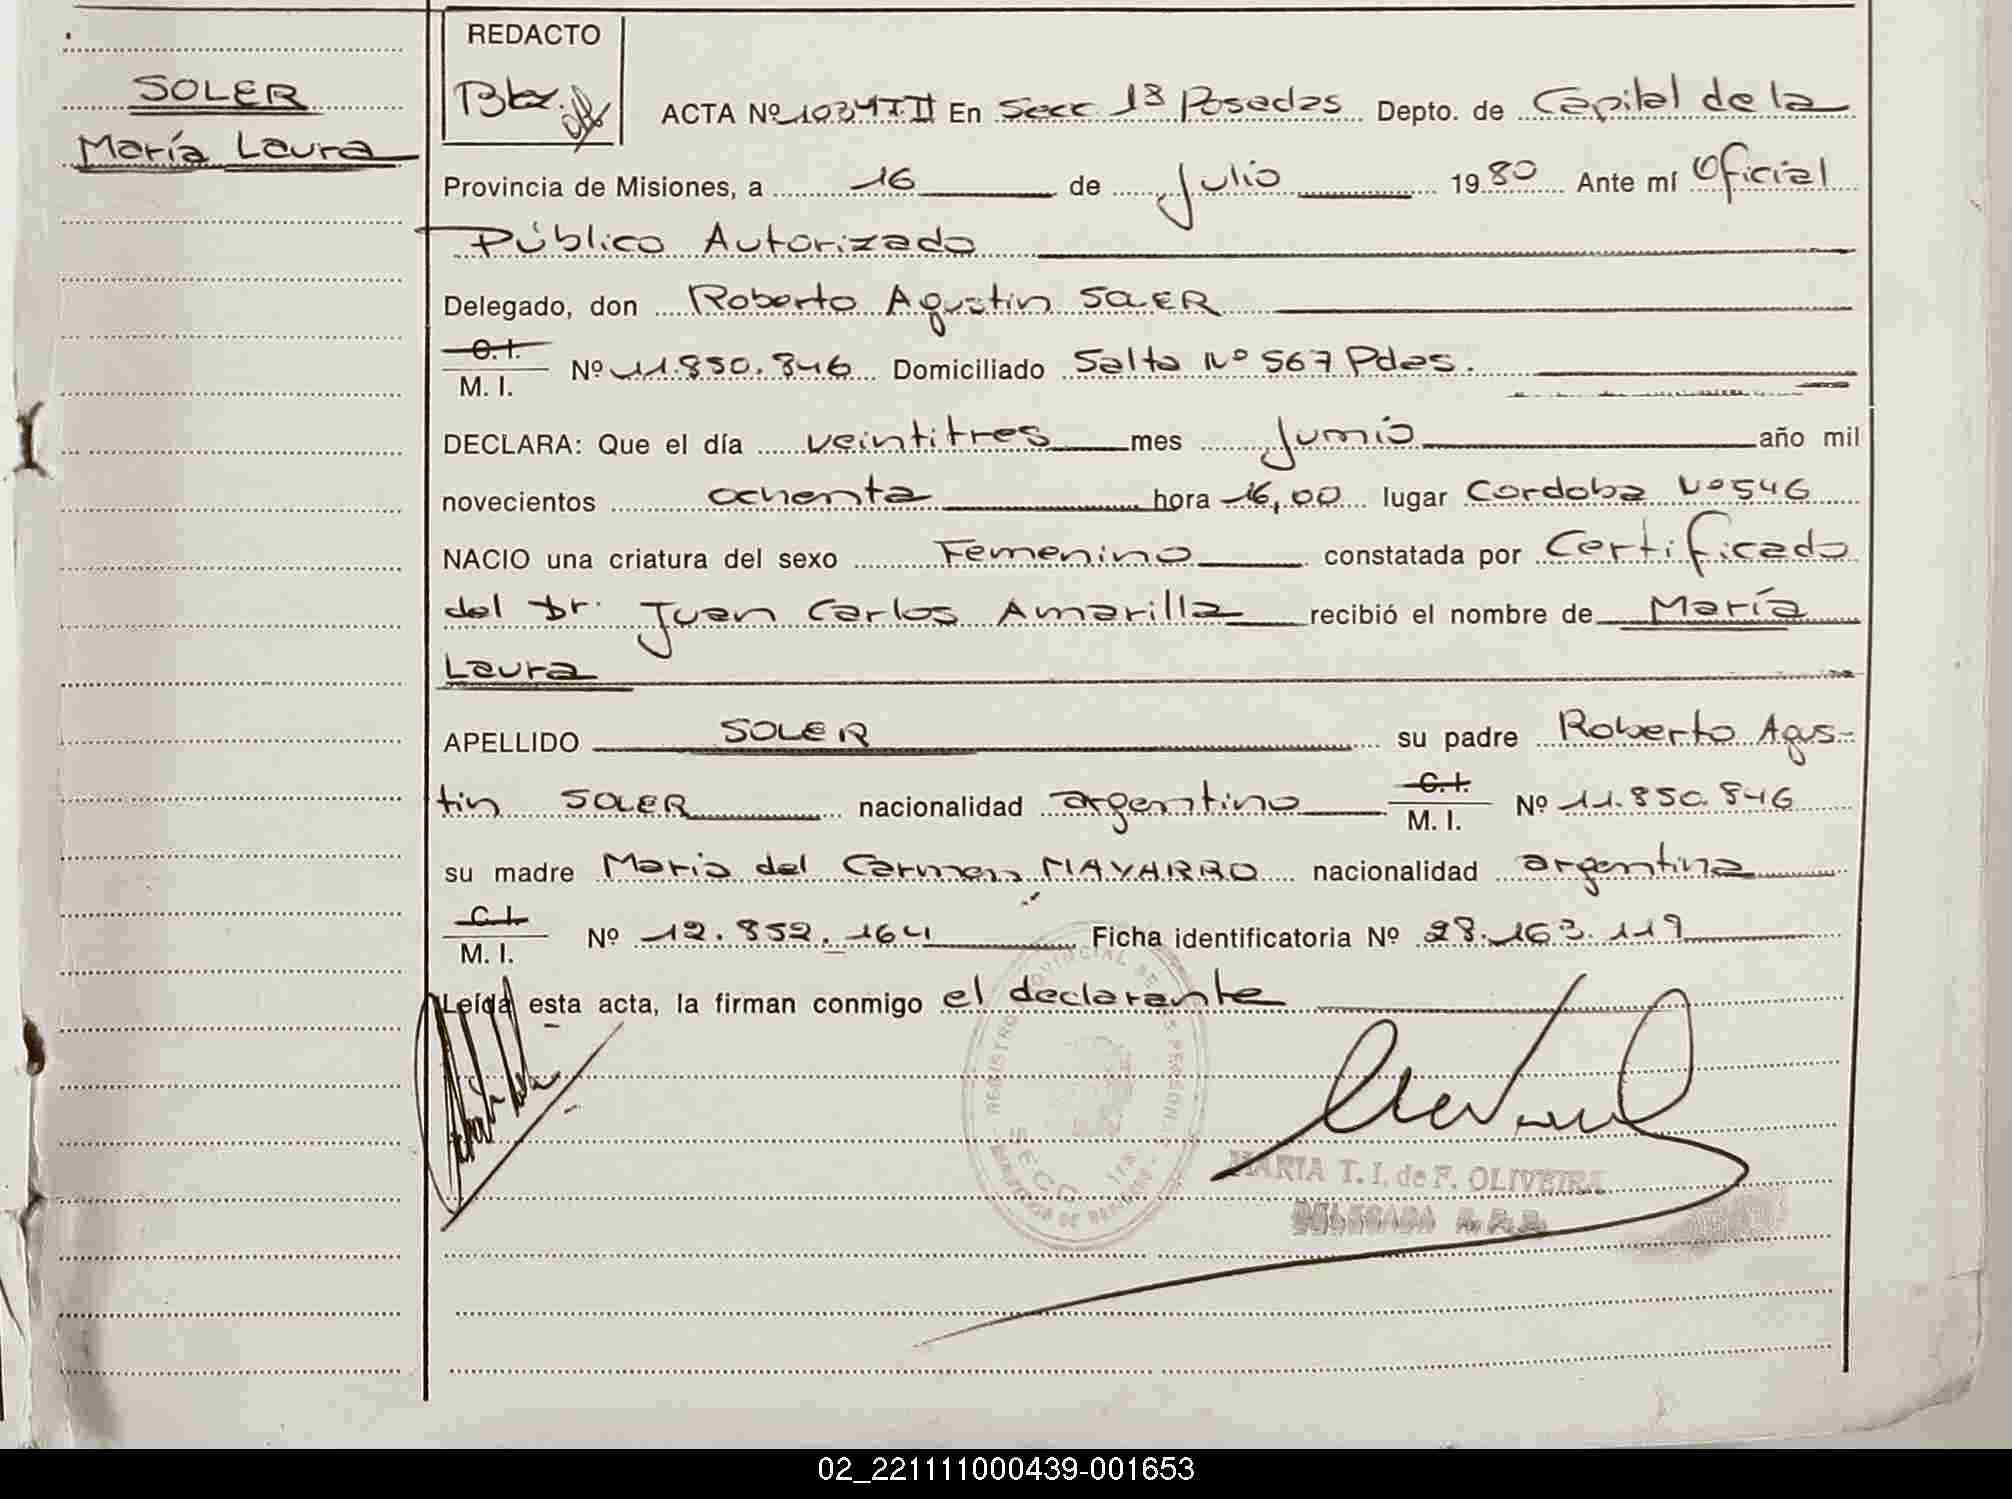 SOLER
María Laura
REDACTO
ACTA Nº 1034 T II En Secc 1ª Posadas Depto. de Capital de la
Provincia de Misiones, a 16 de Julio 1980 Ante mí Oficial
Público Autorizado
Delegado, don Roberto Agustin SOLER
C. I.
M. I. Nº 11.850.846 Domiciliado Salta Nº 567 Pdas.
DECLARA: Que el día veintitres mes Junio año mil
novecientos ochenta hora 16,00 lugar Cordoba Nº 546
NACIO una criatura del sexo Femenino constatada por Certificado
del Dr. Juan Carlos Amarilla recibió el nombre de María
Laura
APELLIDO SOLER su padre Roberto Agus-
tin SOLER nacionalidad argentino C. I. M. I. Nº 11.850.846
su madre Maria del Carmen NAVARRO nacionalidad argentina
C. I.
M. I. Nº 12.852.164 Ficha identificatoria Nº 28.163.119
Leída esta acta, la firman conmigo el declarante
REGISTRO PROVINCIAL DE LAS PERSONAS
SECC. 1ra.
MARIA T. I. de F. OLIVEIRA
DELEGADA
02_221111000439-001653